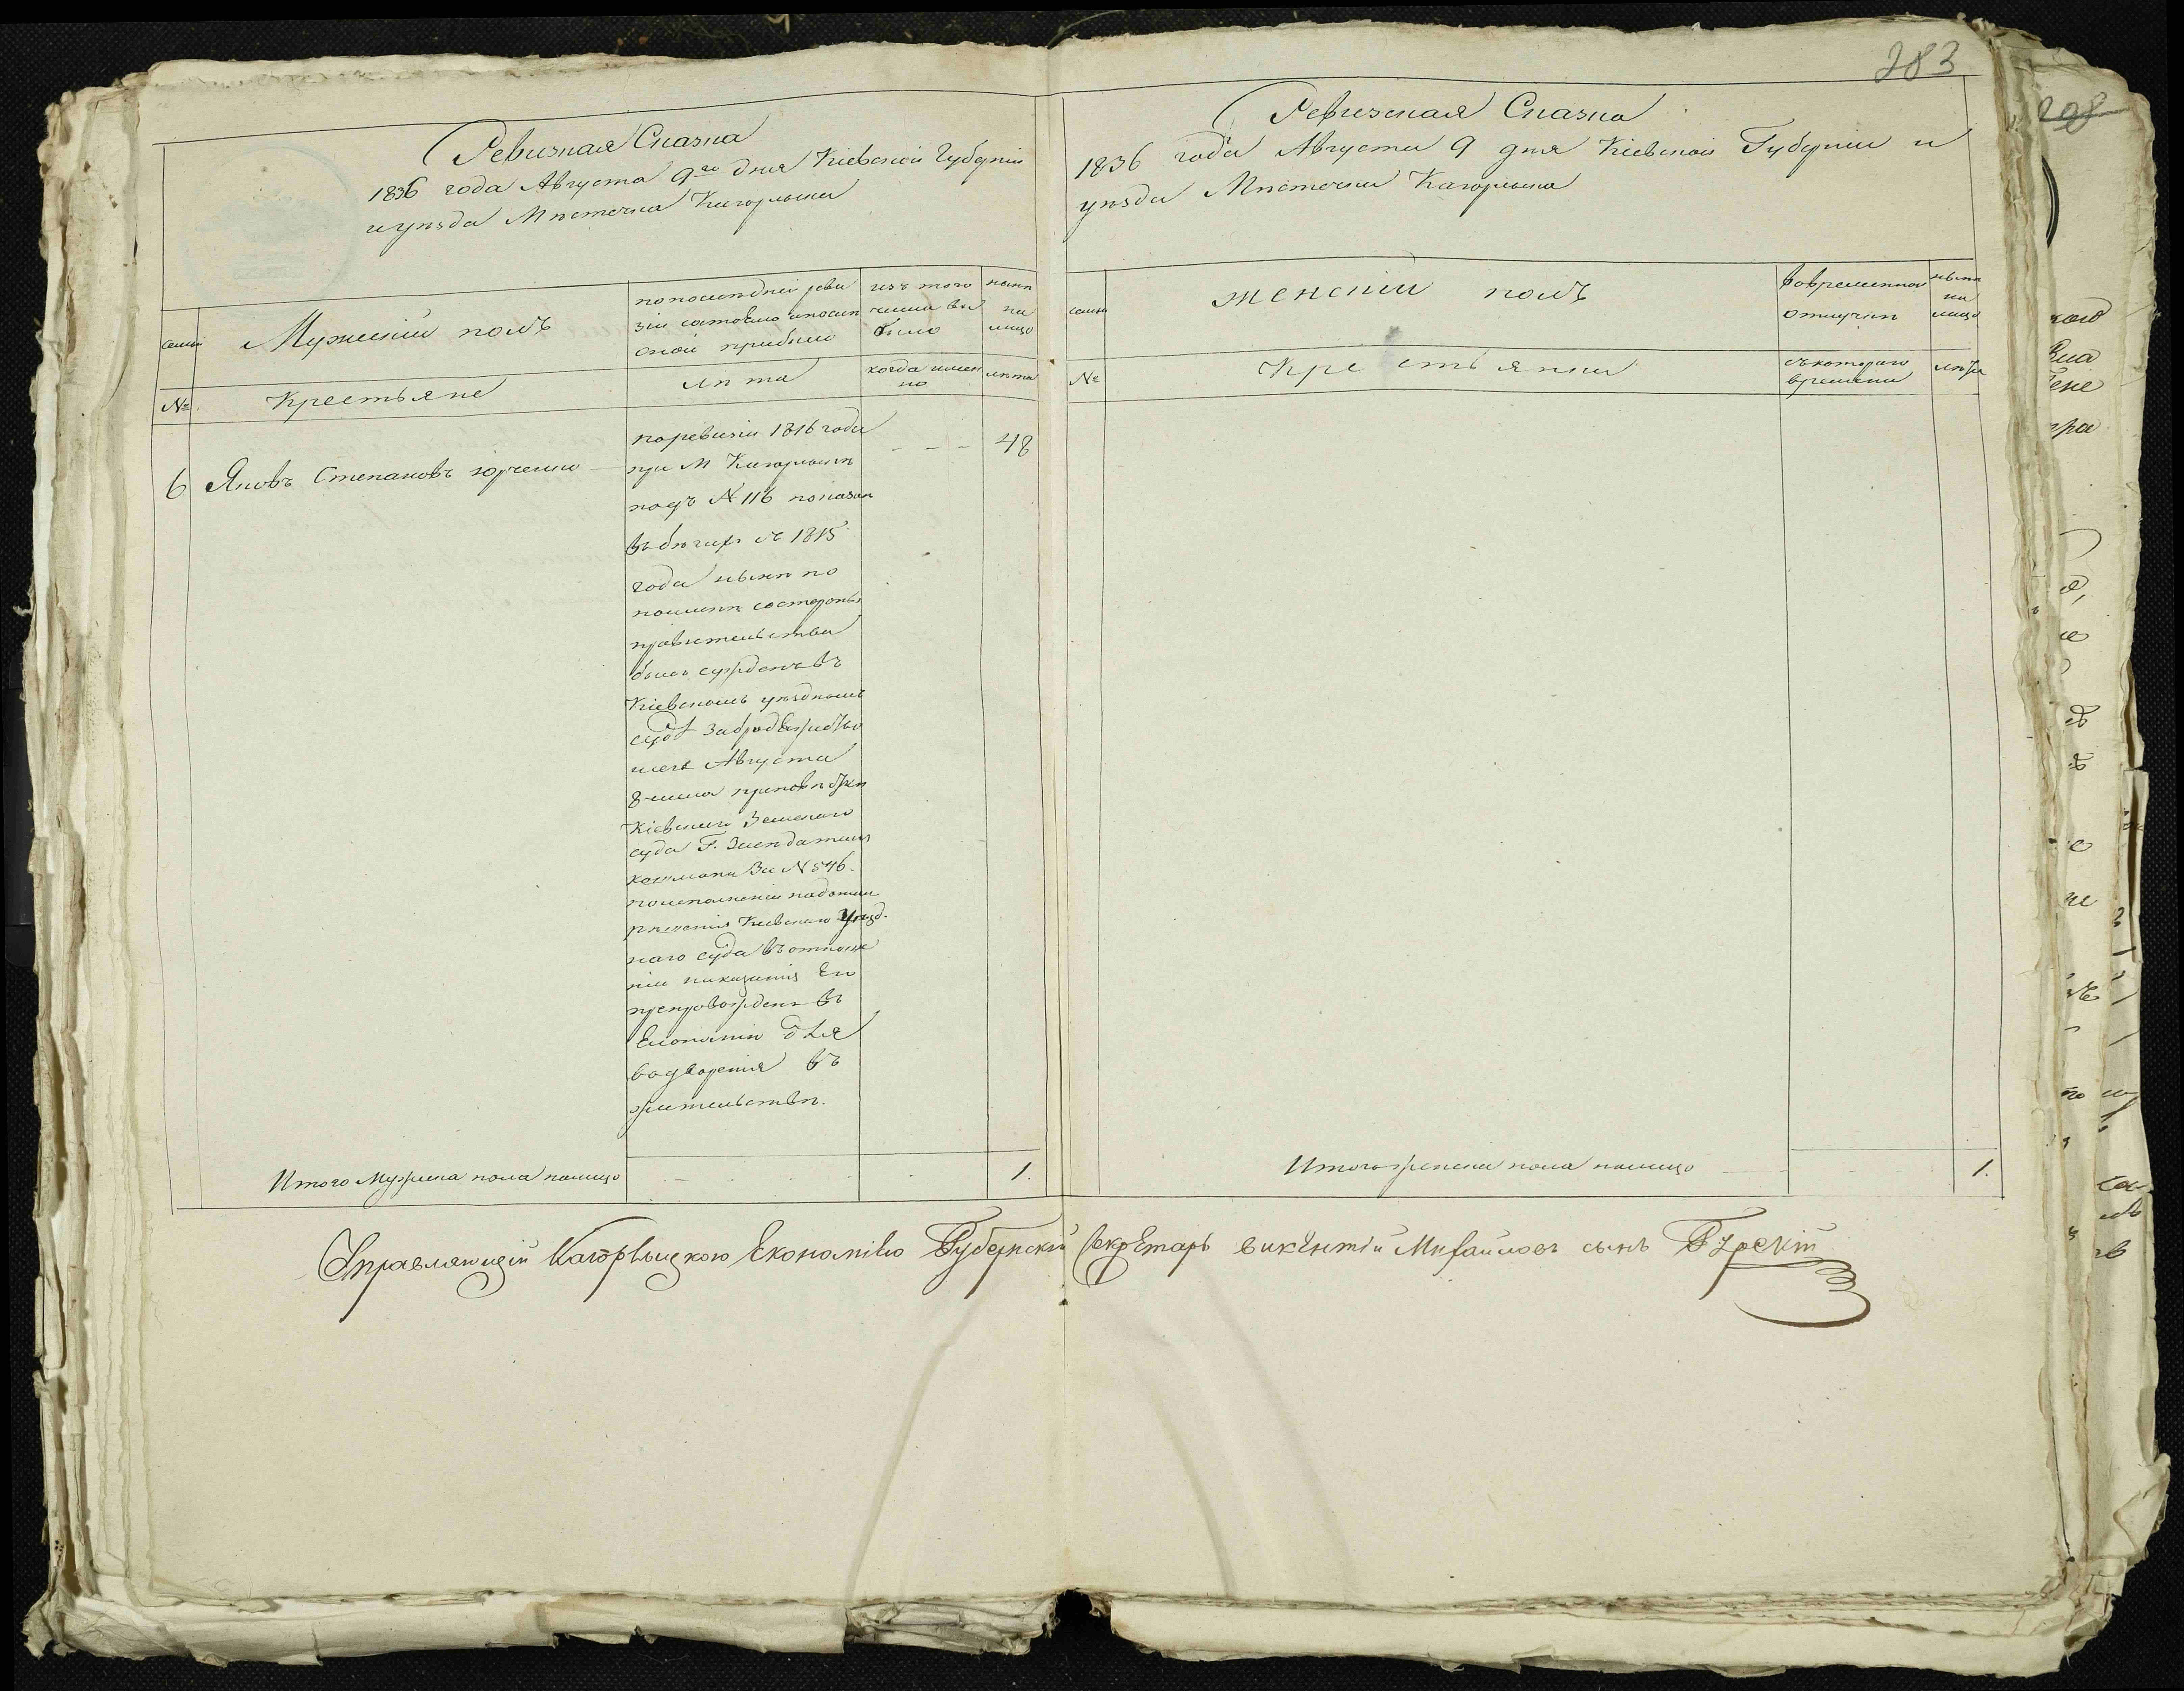 283
Ревизкая Сказка
1836 года Августа 9го дня Кіевской Губерніи
и уѣзда Мѣстечка Кагорлыка
семьи
Мужескій полъ
по послѣдней реви
зіи состояло и послѣ
оной прибыло
изъ того
числа вы
было
нынѣ
на
лицо
№
Крестьяне
лѣта
когда имен
но
лѣта
6 Яковъ Степановъ Юрченко
по ревизіи 1816 года
при М Кагорлыкѣ
подъ N 116 показан
въ бѣгахъ съ 1815
года нынѣ по
поимкѣ со стороны
правительства
былъ сужденъ въ
Кіевскомъ уѣздномъ
судѣ за бродяжество
Августа
8 числа при
Кіевскаго Земскаго
суда Г.
За N 546.
по исполненіи надъ ним
рѣшенія Кіевскаго Уѣзд-
наго суда въ отноше
ніи наказанія Его
препровожденъ въ
Економію для
водворенія въ
жительствѣ.
- - - 48
Итого Мужеска пола налицо 1.
Ревизская Сказка
1836 года Августа 9 дня Кіевской Губерніи и
уѣзда Мѣстечка Кагорлыка
семьи
женскій полъ
во временной
отлучкѣ
нынѣ
на
лицо
№
Крестьянки
съ котораго
времени
лѣта
Итого женска пола налицо 1.
Управляющій Кагорлыцкою Економіею Губернскій Секретарь Викентій Михайловъ сынъ
208